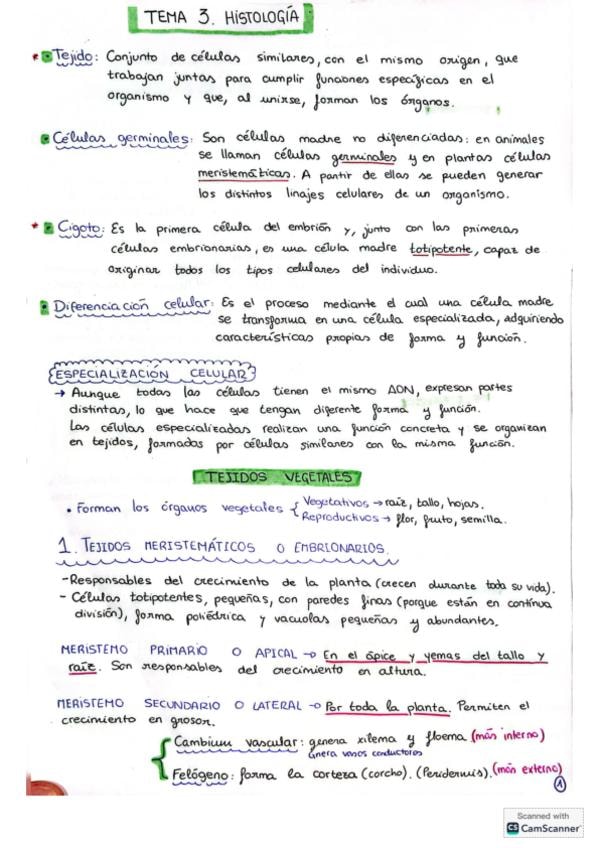 TEMA 3. HISTOLOGÍA
* Tejido: Conjunto de células similares, con el mismo origen, que
trabajan juntas para cumplir funciones específicas en el
organismo y que, al unirse, forman los órganos.
Células germinales: Son células madre no diferenciadas: en animales
se llaman células germinales y en plantas células
meristemáticas. A partir de ellas se pueden generar
los distintos linajes celulares de un organismo.
* Cigoto: Es la primera célula del embrión y, junto con las primeras
células embrionarias, es una célula madre totipotente, capaz de
originar todos los tipos celulares del individuo.
Diferenciación celular: Es el proceso mediante el cual una célula madre
se transforma en una célula especializada, adquiriendo
características propias de forma y función.
ESPECIALIZACIÓN CELULAR
→ Aunque todas las células tienen el mismo ADN, expresan partes
distintas, lo que hace que tengan diferente forma y función.
Las células especializadas realizan una función concreta y se organizan
en tejidos, formados por células similares con la misma función.
TEJIDOS VEGETALES
• Forman los órganos vegetales { Vegetativos → raíz, tallo, hojas.
Reproductivos → flor, fruto, semilla.
1. TEJIDOS MERISTEMÁTICOS O EMBRIONARIOS.
- Responsables del crecimiento de la planta (crecen durante toda su vida).
- Células totipotentes, pequeñas, con paredes finas (porque están en continua
división), forma poliédrica y vacuolas pequeñas y abundantes.
MERISTEMO PRIMARIO O APICAL → En el ápice y yemas del tallo y
raíz. Son responsables del crecimiento en altura.
MERISTEMO SECUNDARIO O LATERAL → Por toda la planta. Permiten el
crecimiento en grosor.
{ Cambium vascular: genera xilema y floema (más interno)
genera vasos conductores
Felógeno: forma la corteza (corcho). (Peridermis). (más externo)
1
Scanned with
CS CamScanner